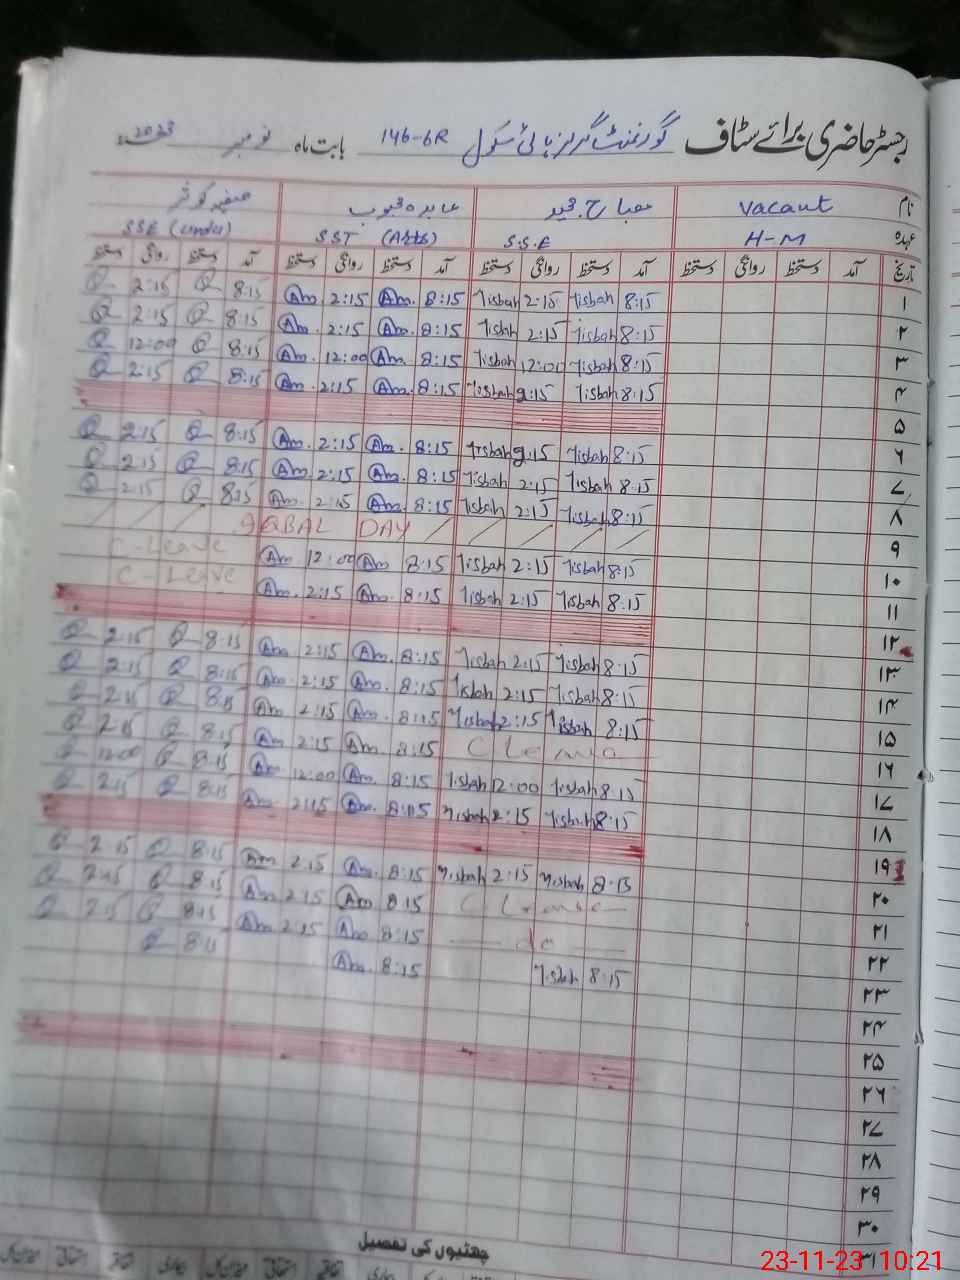 رجسٹر حاضری برائے سٹاف گورنمنٹ گرلز ہائی سکول 146-6R بابت ماہ نومبر 2023ء
نام Vacant مصباح حمید عابدہ محبوب صفیہ کوثر
عہدہ H-M S.S.E SST (Arts) SSE (Urdu)
تاریخ آمد دستخط روانگی دستخط آمد دستخط روانگی دستخط آمد دستخط روانگی دستخط آمد دستخط روانگی دستخط
۱ 8:15 Misbah 2:15 Misbah 8:15 Am. 2:15 Am 8:15 2:15
۲ 8:15 Misbah 2:15 Misbah 8:15 Am. 2:15 Am. 8:15 2:15
۳ 8:15 Misbah 12:00 Misbah 8:15 Am. 12:00 Am. 8:15 12:00
۴ 8:15 Misbah 2:15 Misbah 8:15 Am. 2:15 Am. 8:15 2:15
۵
۶ 8:15 Misbah 2:15 Misbah 8:15 Am. 2:15 Am. 8:15 2:15
۷ 8:15 Misbah 2:15 Misbah 8:15 Am. 2:15 Am. 8:15 2:15
۸ 8:15 Misbah 2:15 Misbah 8:15 Am. 2:15 Am. 8:15 2:15
۹ IQBAL DAY
۱۰ 8:15 Misbah 2:15 Misbah 8:15 Am 12:00 Am C-Leave
۱۱ 8:15 Misbah 2:15 Misbah 8:15 Am. 2:15 Am. C-Leave
۱۲
۱۳ 8:15 Misbah 2:15 Misbah 8:15 Am. 2:15 Am 8:15 2:15
۱۴ 8:15 Misbah 2:15 Misbah 8:15 Am. 2:15 Am. 8:15 2:15
۱۵ 8:15 Misbah 2:15 Misbah 8:15 Am. 2:15 Am 8:15 2:15
۱۶ C Leave 8:15 Am. 2:15 Am 8:15 2:15
۱۷ 8:15 Misbah 12:00 Misbah 8:15 Am. 12:00 Am 8:15 12:00
۱۸ 8:15 Misbah 2:15 Misbah 8:15 Am. 2:15 Am. 8:15 2:15
۱۹
۲۰ 8:15 Misbah 2:15 Misbah 8:15 Am. 2:15 Am 8:15 2:15
۲۱ C Leave 8:15 Am 2:15 Am 8:15 2:15
۲۲ do 8:15 Am 2:15 Am. 8:15 2:15
۲۳ 8:15 Misbah 8:15 Am. 8:15
۲۴
۲۵
۲۶
۲۷
۲۸
۲۹
۳۰
۳۱
چھٹیوں کی تفصیل
23-11-23 10:21